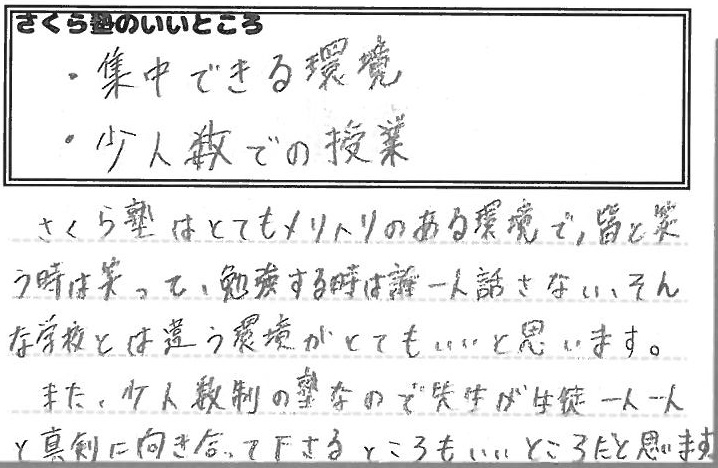 さくら塾のいいところ
・集中できる環境
・少人数での授業
さくら塾はとてもメリハリのある環境で、皆と笑
う時は笑って、勉強する時は誰一人話さない、そん
な学校とは違う環境がとてもいいと思います。
また、少人数制の塾なので先生が生徒一人一人
と真剣に向き合って下さるところもいいところだと思います